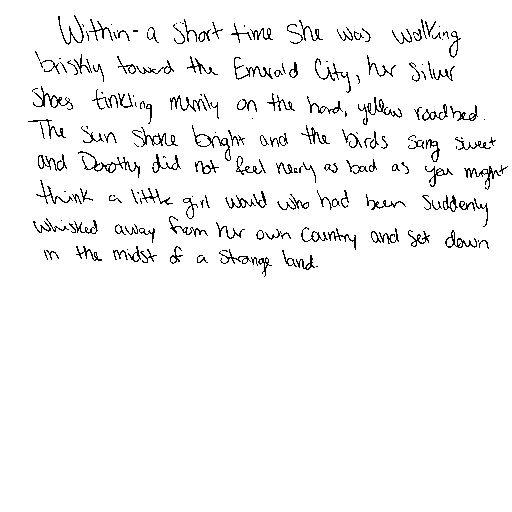 Within a short time she was walking
briskly toward the Emerald City, her Silver
Shoes tinkling merrily on the hard, yellow roadbed.
The sun shone bright and the birds sang sweet
and Dorothy did not feel nearly as bad as you might
think a little girl would who had been suddenly
whisked away from her own country and set down
in the midst of a strange land.